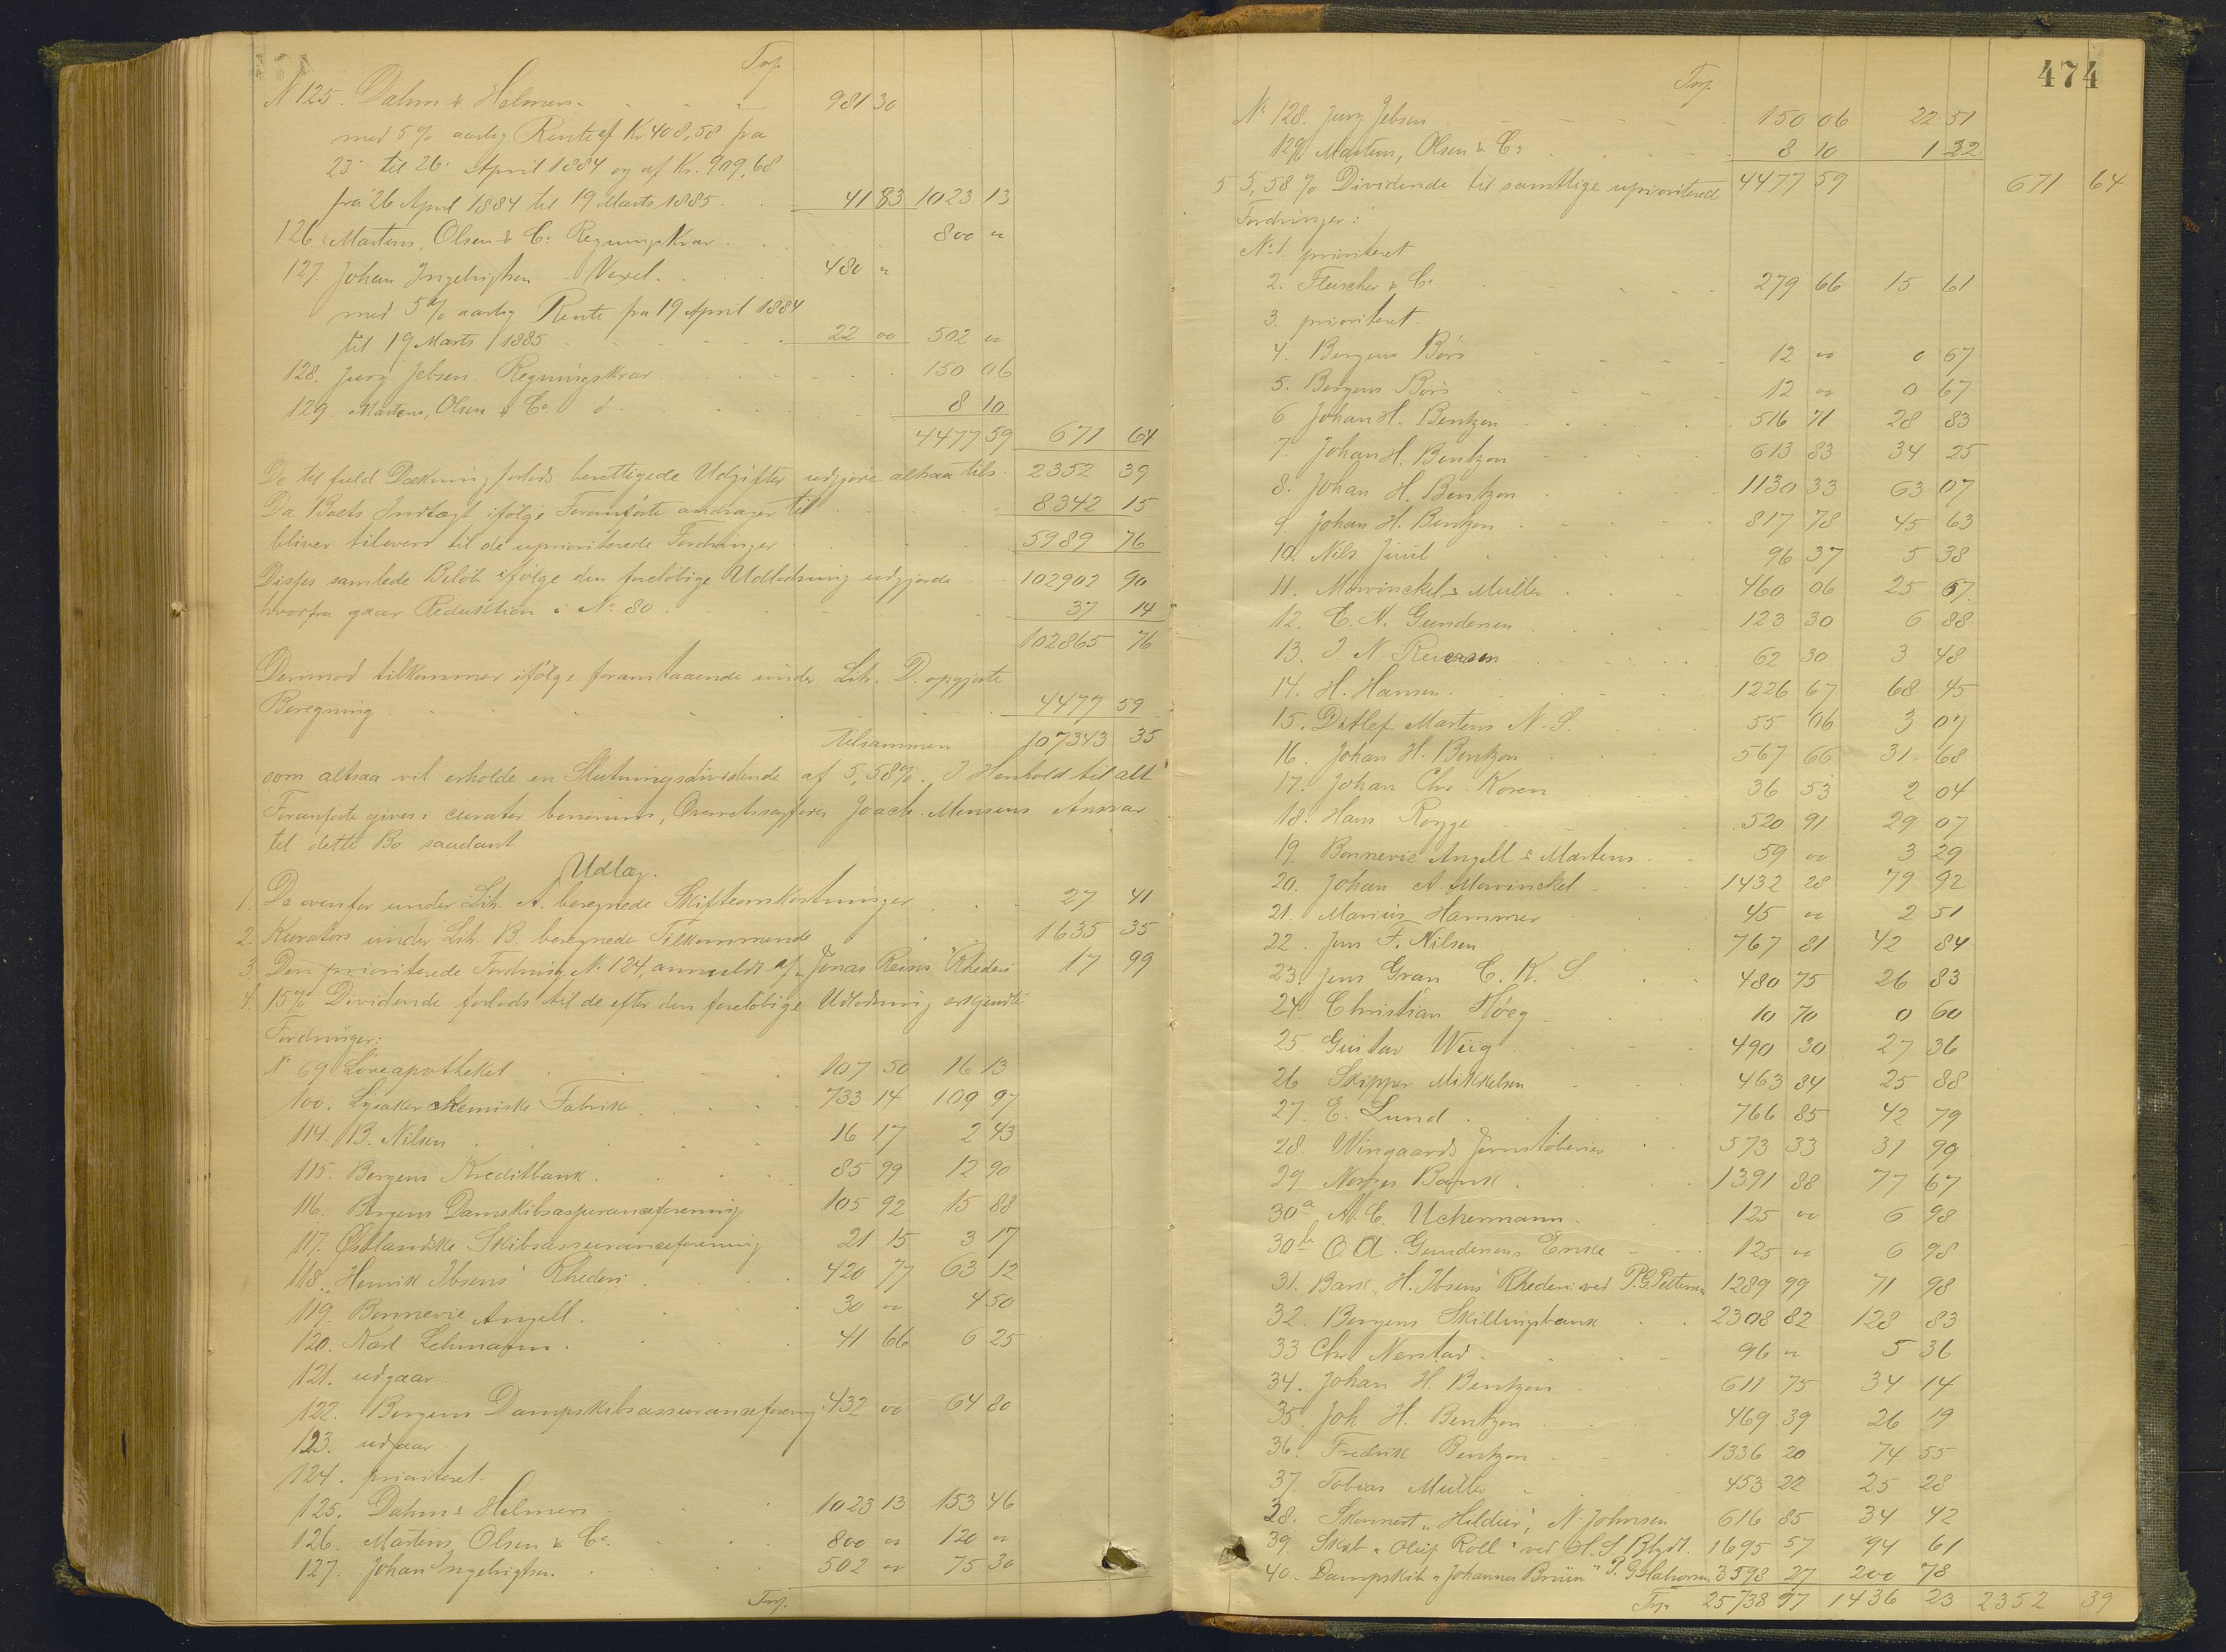 Trsp.
N 125. Dahm & Helmers. 981 30
med 5% aarlig Rente af Kr 408,58 fra
23' til 26' April 1884 og af Kr. 909,68
fra 26 April 1884 til 19 Marts 1885. 41 83 1023 13
126. Martens, Olsen & Co Regningskrav. 800 "
127. Johan Ingebrigtsen Vexel. 480 "
med 5% aarlig Rente fra 19 April 1884
til 19 Marts 1885 22 00 502 00
128. Jurg Jebsen Regningskrav 150 06
129. Martens, Olsen & Co. d. 8 10
4477 59 671 64
De til fuld Dækning forlods berettigede Udgifter udgjøre altsaa tils. 2352 39
Da Boets Indtægt ifølge Foranførte andrager til 8342 15
bliver tilovers til de uprioriterede Fordringer 5989 76
Disses samlede Beløb ifølge den foreløbige Udlodning udgjorde 102902 90
hvorfra gaar Reduktion i No. 80. 37 14
102865 76
Derimod tilkommer ifølge foranstaaende under Litr. D. opgjorte
Beregning 4477 59
tilsammen 107343 35
som altsaa vil erholde en Slutningsdividende af 5,58%. I Henhold til alt
Foranførte gives i curator bonorums, Overretssagfører Joach. Monsens Ansvar
til dette Bo saadant
Udlæg.
1. De ovenfor under Litr. A. beregnede Skifteomkostninger 27 41
2. Kurators under Litr. B. beregnede Tilkommende 1635 35
3. Den prioriterede Fordring No. 124, anmeldt af "Jonas Reins" Rhederi 17 99
4. 15% Dividende forlods til de efter den foreløbige Udlodning erkjendte
Fordringer:
No 69 Løveapotheket 107 50 16 13
100. Lysaker chemiske Fabrik. 733 14 109 97
114. B. Nilsen 16 17 2 43
115. Bergens Kreditbank. 85 99 12 90
116. Bergens Damskibsassuranceforening 105 92 15 88
117. Østlandske Skibsassuranceforening 21 15 3 17
118. "Henrik Ibsens" Rhederi 420 77 63 12
119. Bonnevie Angell. 30 00 4 50
120. Karl Lehmann. 41 66 6 25
121. udgaar.
122. Bergens Dampskibsassuranceforening. 432 00 64 80
123. udgaar.
124. prioriteret.
125. Dahm & Helmers 1023 13 153 46
126. Martens Olsen & Co. 800 00 120 "
127. Johan Ingebrigtsen. 502 " 75 30
Trsp.
474
Trsp.
No 128. Jurg Jebsen 150 06 22 51
129. Martens, Olsen & Co 8 10 1 22
4477 59 671 64
5 5,58% Dividende til samtlige uprioriterede
Fordringer:
No 1. prioriteret
2. Fleischer & Co 279 66 15 61
3. prioriteret.
4. Bergens Børs 12 00 0 67
5. Bergens Børs 12 00 0 67
6 Johan H. Bentzon 516 71 28 83
7. Johan H. Bentzon 613 83 34 25
8. Johan H. Bentzon 1130 33 63 07
9. Johan H. Bentzon 817 78 45 63
10. Nils Juul 96 37 5 38
11. Mowinckel & Muller 460 06 25 67
12. E. N. Gundersen 123 30 6 88
13. J. N. Reiersen 62 30 3 48
14. H. Hansen. 1226 67 68 45
15. Ditlef Martens N. S. 55 06 3 07
16. Johan H. Bentzon 567 66 31 68
17. Johan Chr. Koren 36 53 2 04
18. Hans Rogge 520 91 29 07
19. Bonnevie Angell & Martens 59 00 3 29
20. Johan A. Mowinckel 1432 28 79 92
21. Marius Hammer 45 00 2 51
22. Jens F. Nilsen 767 81 42 84
23. Jens Gran C. K. S 480 75 26 83
24 Christian Høeg 10 70 0 60
25. Gustav Wiig 490 30 27 36
26 Skipper Mikkelsen 463 84 25 88
27. E. Lund 766 85 42 79
28. Wingaards Jernstøberier 573 33 31 99
29 Norges Bank. 1391 88 77 67
30a N. C. Uchermann. 125 00 6 98
30b O. A. Gundersens Enke 125 00 6 98
31. Bark "H. Ibsens" Rhederi ved P. G. Pettersen 1289 99 71 98
32. Bergens Skillingsbank 2308 82 128 83
33 Chr Nerstad 96 " 5 36
34. Johan H. Bentzon 611 75 34 14
35. Joh H. Bentzon 469 39 26 19
36. Fredrik Bentzon 1336 20 74 55
37. Tobias Müller 453 22 25 28
38. Skonnert "Heldur", N. Johnsen 616 85 34 42
39. Skib "Oluf Roll" ved H. S. Blydt. 1695 57 94 61
40. Dampskib "Johannes Bruun" 3598 27 200 78
Trsp. 25738 97 1436 23 2352 39